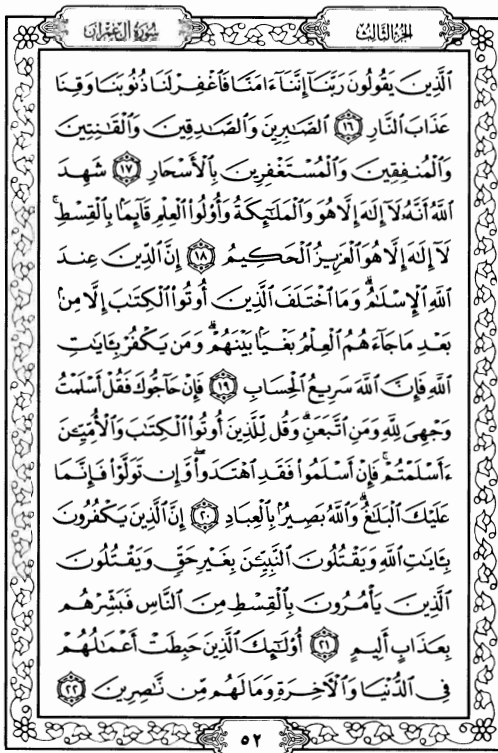 الجزء الثالث
سورة آل عمران
ٱلَّذِينَ يَقُولُونَ رَبَّنَآ إِنَّنَآ ءَامَنَّا فَٱغْفِرْ لَنَا ذُنُوبَنَا وَقِنَا
عَذَابَ ٱلنَّارِ ١٦ ٱلصَّٰبِرِينَ وَٱلصَّٰدِقِينَ وَٱلْقَٰنِتِينَ
وَٱلْمُنفِقِينَ وَٱلْمُسْتَغْفِرِينَ بِٱلْأَسْحَارِ ١٧ شَهِدَ
ٱللَّهُ أَنَّهُۥ لَآ إِلَٰهَ إِلَّا هُوَ وَٱلْمَلَٰٓئِكَةُ وَأُو۟لُوا۟ ٱلْعِلْمِ قَآئِمًۢا بِٱلْقِسْطِ ۚ
لَآ إِلَٰهَ إِلَّا هُوَ ٱلْعَزِيزُ ٱلْحَكِيمُ ١٨ إِنَّ ٱلدِّينَ عِندَ
ٱللَّهِ ٱلْإِسْلَٰمُ ۗ وَمَا ٱخْتَلَفَ ٱلَّذِينَ أُوتُوا۟ ٱلْكِتَٰبَ إِلَّا مِنۢ
بَعْدِ مَا جَآءَهُمُ ٱلْعِلْمُ بَغْيًۢا بَيْنَهُمْ ۗ وَمَن يَكْفُرْ بِـَٔايَٰتِ
ٱللَّهِ فَإِنَّ ٱللَّهَ سَرِيعُ ٱلْحِسَابِ ١٩ فَإِنْ حَآجُّوكَ فَقُلْ أَسْلَمْتُ
وَجْهِىَ لِلَّهِ وَمَنِ ٱتَّبَعَنِ ۗ وَقُل لِّلَّذِينَ أُوتُوا۟ ٱلْكِتَٰبَ وَٱلْأُمِّيِّۦنَ
ءَأَسْلَمْتُمْ ۚ فَإِنْ أَسْلَمُوا۟ فَقَدِ ٱهْتَدَوا۟ ۖ وَّإِن تَوَلَّوْا۟ فَإِنَّمَا
عَلَيْكَ ٱلْبَلَٰغُ ۗ وَٱللَّهُ بَصِيرٌۢ بِٱلْعِبَادِ ٢٠ إِنَّ ٱلَّذِينَ يَكْفُرُونَ
بِـَٔايَٰتِ ٱللَّهِ وَيَقْتُلُونَ ٱلنَّبِيِّۦنَ بِغَيْرِ حَقٍّ وَيَقْتُلُونَ
ٱلَّذِينَ يَأْمُرُونَ بِٱلْقِسْطِ مِنَ ٱلنَّاسِ فَبَشِّرْهُم
بِعَذَابٍ أَلِيمٍ ٢١ أُو۟لَٰٓئِكَ ٱلَّذِينَ حَبِطَتْ أَعْمَٰلُهُمْ
فِى ٱلدُّنْيَا وَٱلْءَاخِرَةِ وَمَا لَهُم مِّن نَّٰصِرِينَ ٢٢
٥٢